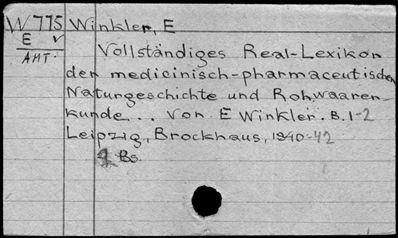 W 775 Winkler, E
E ✓
AMT. Vollständiges Real-Lexikon
der medicinisch-pharmaceutischen
Naturgeschichte und Rohwaaren-
kunde... von E Winkler. B. 1-2
Leipzig, Brockhaus, 1840-42
Bs